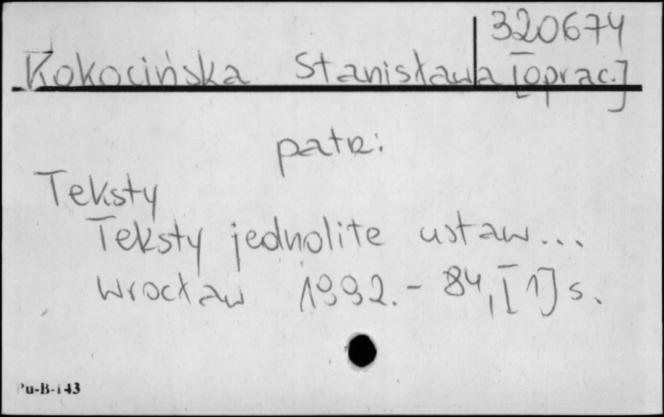 320674
Kokocińska Stanisława [oprac.]
patrz:
Teksty
Teksty jednolite ustaw...
Wrocław 1992. - 84, [1] s.
Pu-B-143